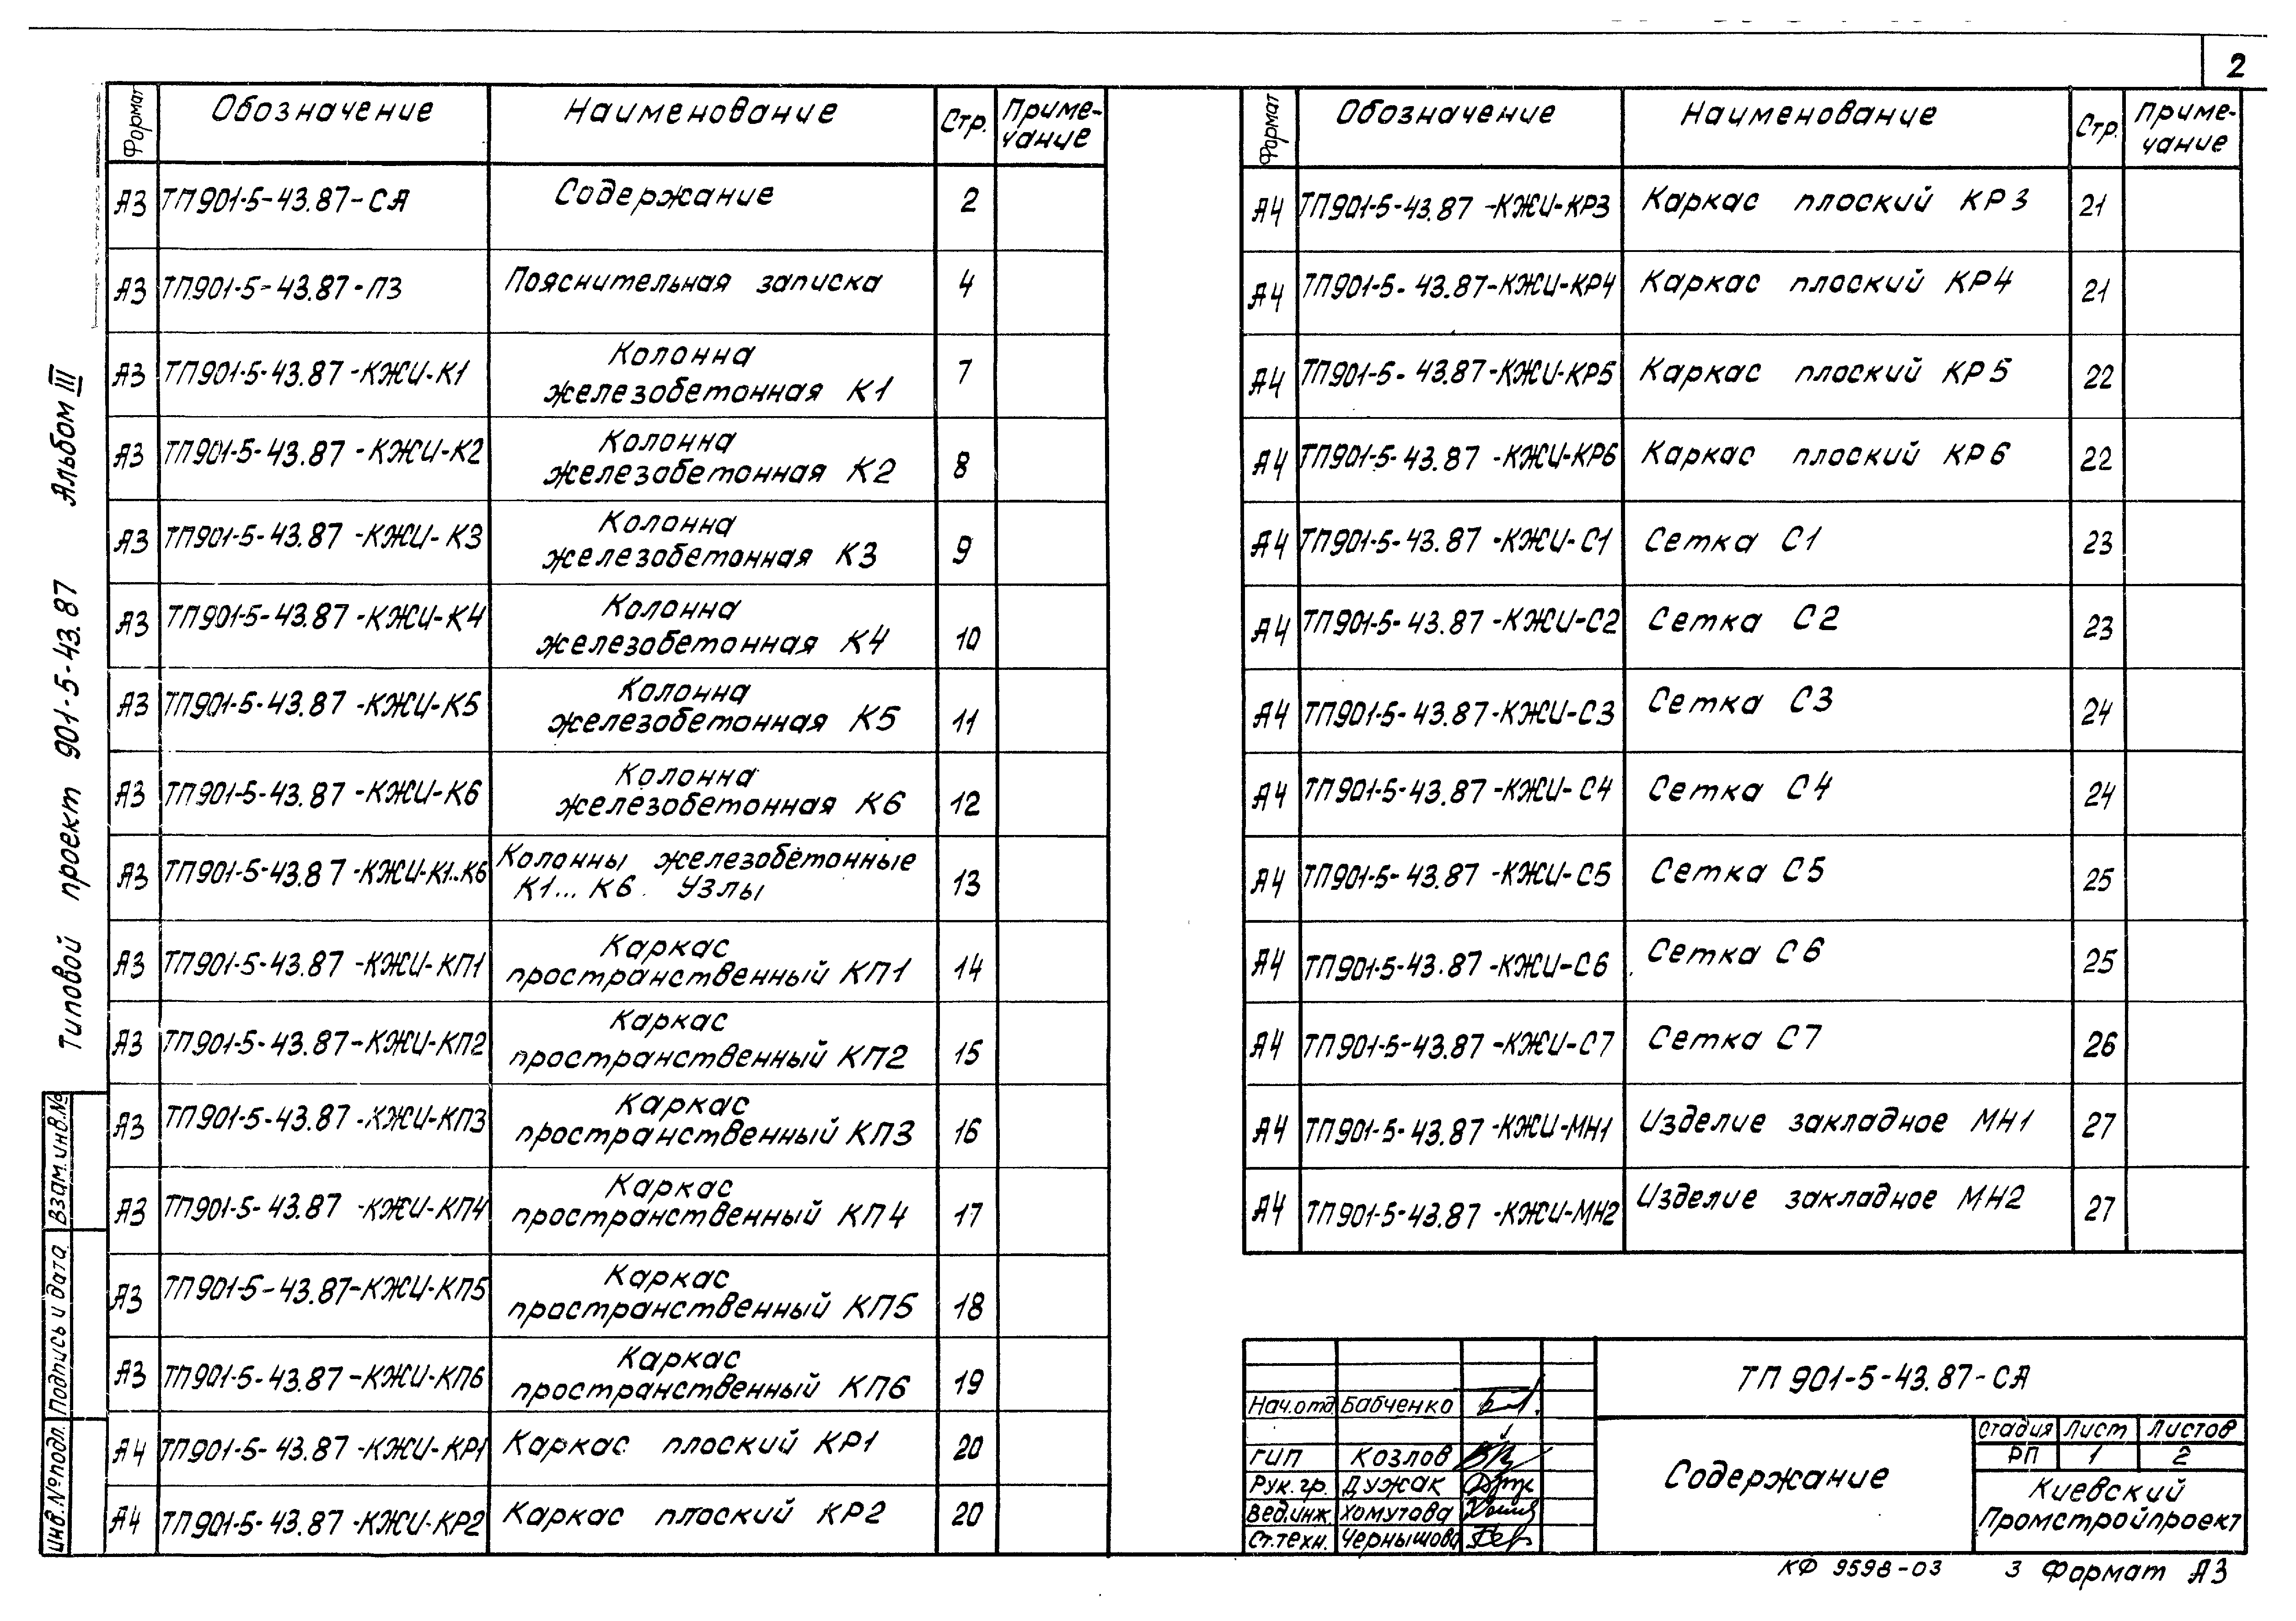 2
Формат Обозначение Наименование Стр. Приме-
чание
А3 ТП901-5-43.87-СА Содержание 2
А3 ТП901-5-43.87-ПЗ Пояснительная записка 4
А3 ТП901-5-43.87-КЖИ-К1 Колонна
железобетонная К1 7
А3 ТП901-5-43.87-КЖИ-К2 Колонна
железобетонная К2 8
А3 ТП901-5-43.87-КЖИ-К3 Колонна
железобетонная К3 9
А3 ТП901-5-43.87-КЖИ-К4 Колонна
железобетонная К4 10
А3 ТП901-5-43.87-КЖИ-К5 Колонна
железобетонная К5 11
А3 ТП901-5-43.87-КЖИ-К6 Колонна
железобетонная К6 12
А3 ТП901-5-43.87-КЖИ-К1..К6 Колонны железобетонные
К1...К6. Узлы 13
А3 ТП901-5-43.87-КЖИ-КП1 Каркас
пространственный КП1 14
А3 ТП901-5-43.87-КЖИ-КП2 Каркас
пространственный КП2 15
А3 ТП901-5-43.87-КЖИ-КП3 Каркас
пространственный КП3 16
А3 ТП901-5-43.87-КЖИ-КП4 Каркас
пространственный КП4 17
А3 ТП901-5-43.87-КЖИ-КП5 Каркас
пространственный КП5 18
А3 ТП901-5-43.87-КЖИ-КП6 Каркас
пространственный КП6 19
А4 ТП901-5-43.87-КЖИ-КР1 Каркас плоский КР1 20
А4 ТП901-5-43.87-КЖИ-КР2 Каркас плоский КР2 20
Формат Обозначение Наименование Стр. Приме-
чание
А4 ТП901-5-43.87-КЖИ-КР3 Каркас плоский КР3 21
А4 ТП901-5-43.87-КЖИ-КР4 Каркас плоский КР4 21
А4 ТП901-5-43.87-КЖИ-КР5 Каркас плоский КР5 22
А4 ТП901-5-43.87-КЖИ-КР6 Каркас плоский КР6 22
А4 ТП901-5-43.87-КЖИ-С1 Сетка С1 23
А4 ТП901-5-43.87-КЖИ-С2 Сетка С2 23
А4 ТП901-5-43.87-КЖИ-С3 Сетка С3 24
А4 ТП901-5-43.87-КЖИ-С4 Сетка С4 24
А4 ТП901-5-43.87-КЖИ-С5 Сетка С5 25
А4 ТП901-5-43.87-КЖИ-С6 Сетка С6 25
А4 ТП901-5-43.87-КЖИ-С7 Сетка С7 26
А4 ТП901-5-43.87-КЖИ-МН1 Изделие закладное МН1 27
А4 ТП901-5-43.87-КЖИ-МН2 Изделие закладное МН2 27
Типовой проект 901-5-43.87 Альбом III
Инв.№подл. Подпись и дата Взам.инв.№
ТП 901-5-43.87-СА
Нач.отд. Бабченко
ГИП Козлов
Рук.гр. Дужак
Вед.инж. Хомутова
Ст.техн. Чернышова
Содержание
Стадия Лист Листов
РП 1 2
Киевский
Промстройпроект
КФ 9598-03 3 Формат А3